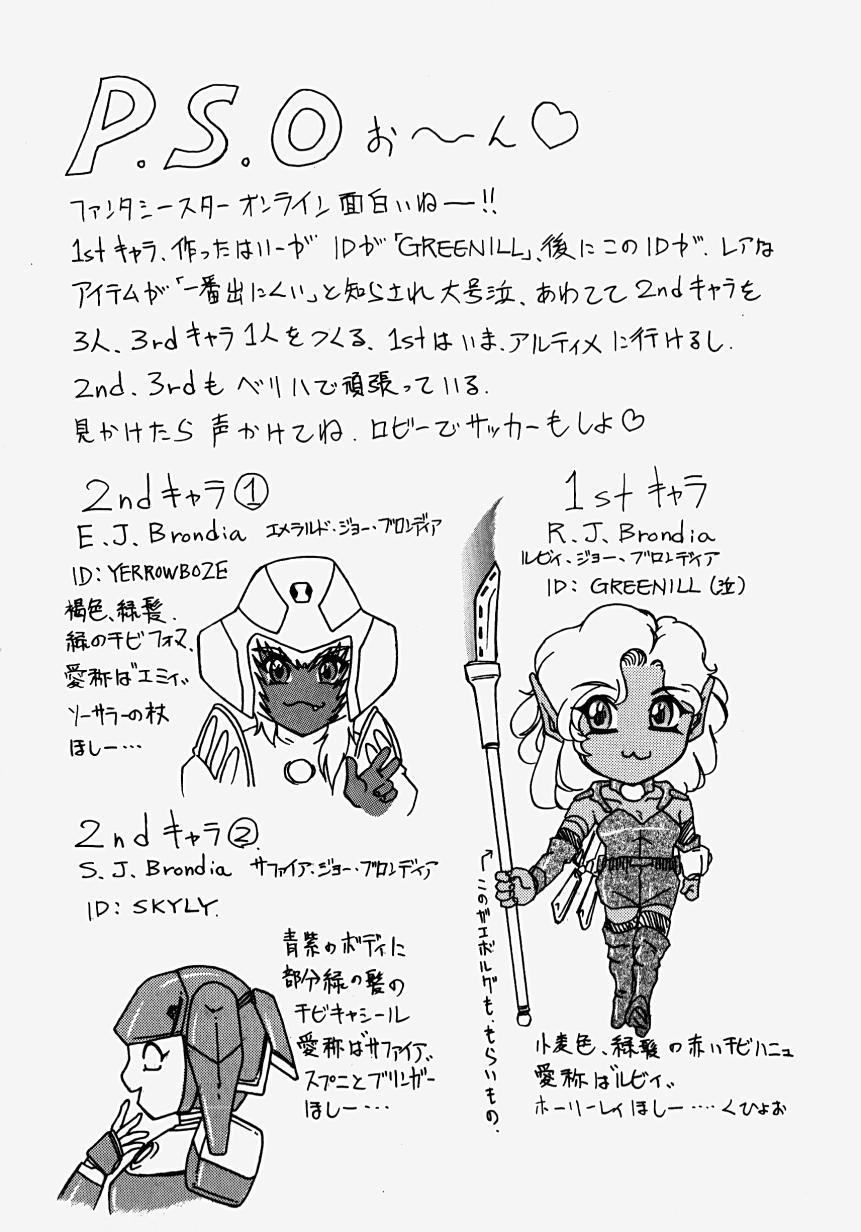 P.S.O お〜ん♡
ファンタシースター オンライン 面白いねー!!
1stキャラ、作ったはいーが IDが「GREENILL」、後にこのIDが、レアな
アイテムが「一番出にくい」と知らされ大号泣、あわてて2ndキャラを
3人、3rdキャラ1人をつくる、1stはいま、アルティメに行けるし、
2nd、3rdも ベリハで頑張っている。
見かけたら 声かけてね。ロビーでサッカーもしよ♡
2ndキャラ①
E.J.Brondia エメラルド・ジョー・ブロンディア
ID: YERROWBOZE
褐色、緑髪、
緑のチビフォマ、
愛称は"エミィ"
ソーサラーの杖
ほしー…
1stキャラ
R.J.Brondia
ルビィ、ジョー、ブロンディア
ID: GREENILL (泣)
このガエボルグも、もらいもの。
小麦色、緑髪の赤いチビハニュ
愛称は"ルビィ"
ホーリーレイほしー…… くひょお
2ndキャラ②
S.J.Brondia サファイア・ジョー・ブロンディア
ID: SKYLY
青紫のボディに
部分緑の髪の
チビキャシール
愛称は"サファイア"
スプニとブリンガー
ほしー…